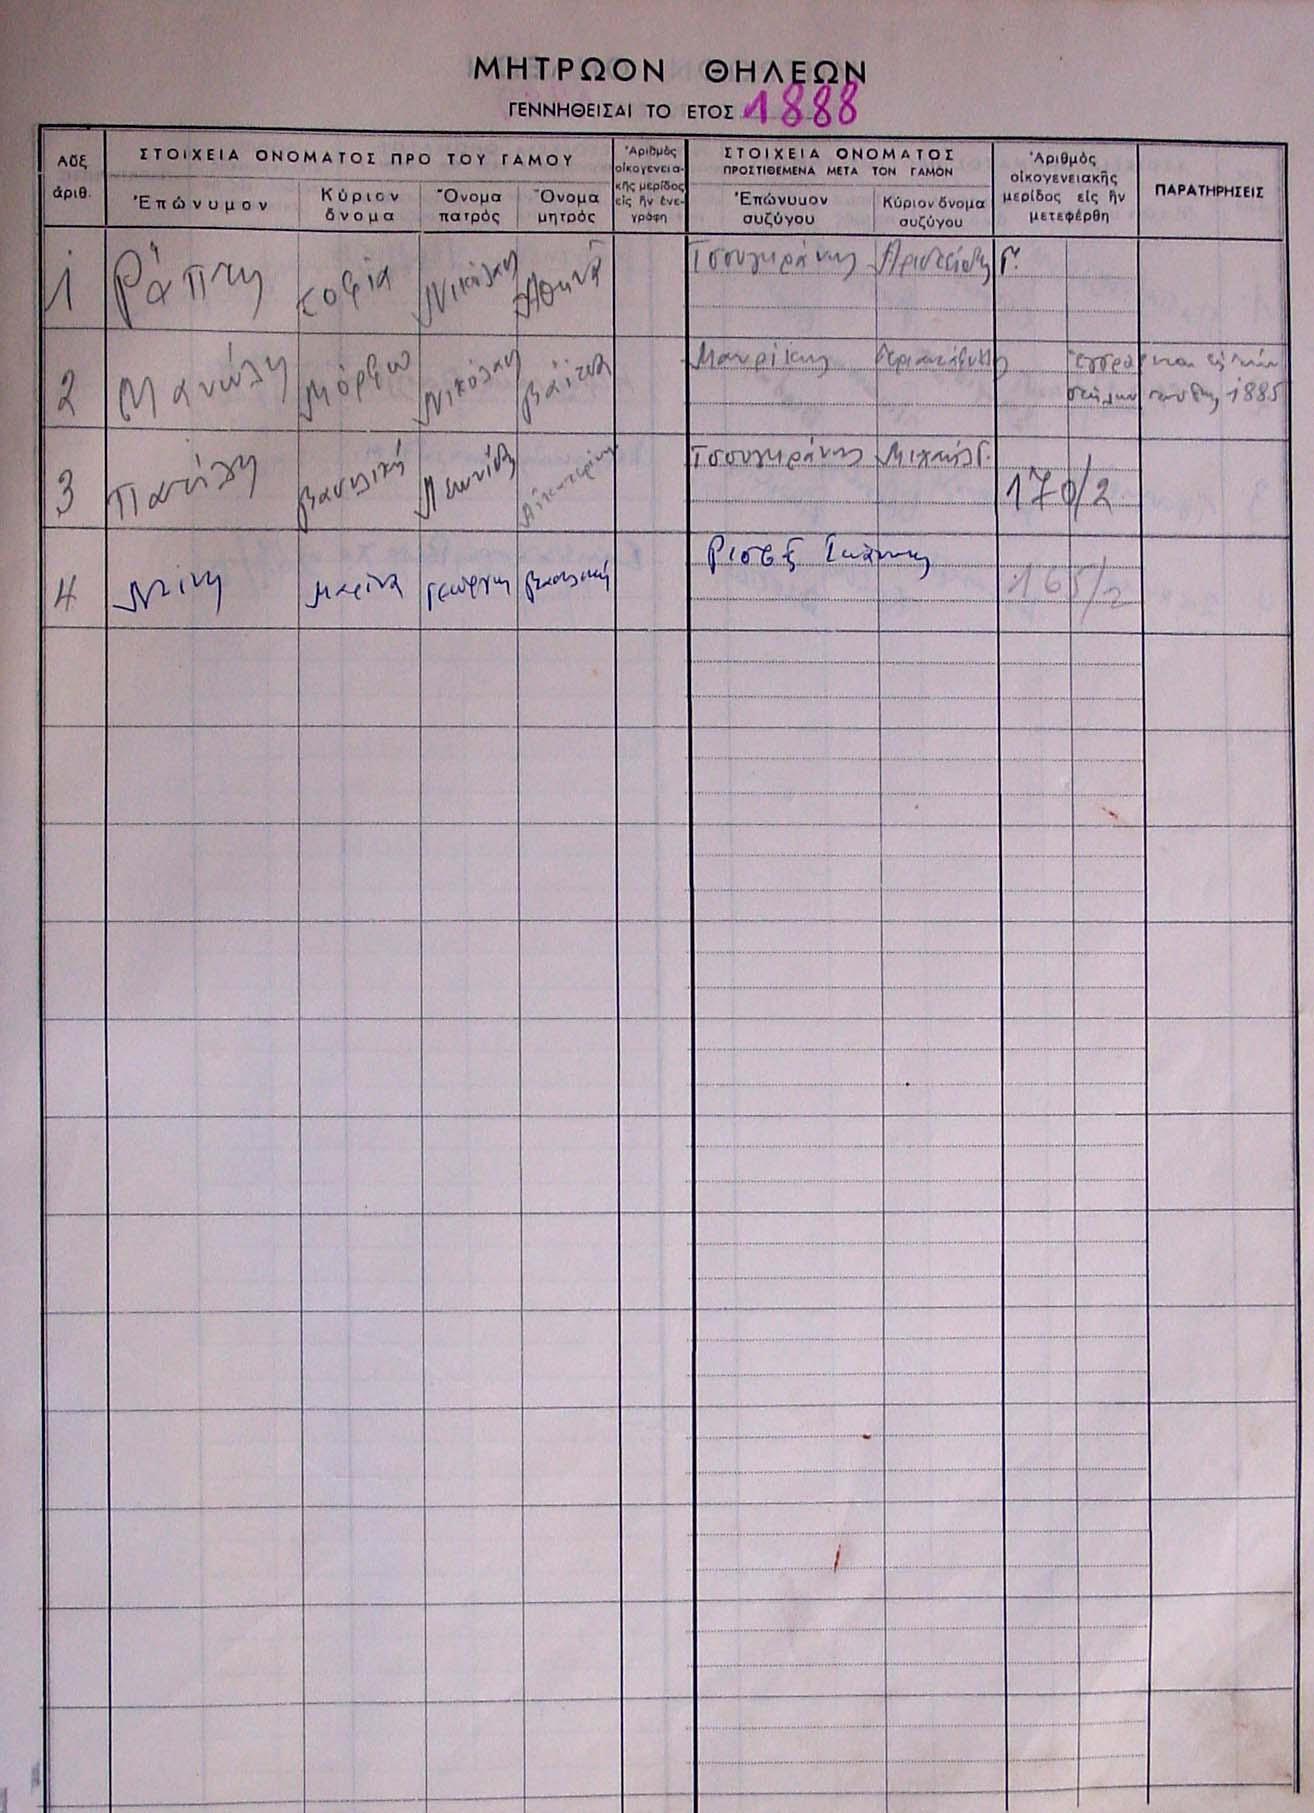 ΜΗΤΡΩΟΝ ΘΗΛΕΩΝ
ΓΕΝΝΗΘΕΙΣΑΙ ΤΟ ΕΤΟΣ 1888
Αὔξ. ἀριθ.
ΣΤΟΙΧΕΙΑ ΟΝΟΜΑΤΟΣ ΠΡΟ ΤΟΥ ΓΑΜΟΥ
Ἐπώνυμον
Κύριον ὄνομα
Ὄνομα πατρός
Ὄνομα μητρός
Ἀριθμὸς οἰκογενειακῆς μερίδος εἰς ἣν ἐνεγράφη
ΣΤΟΙΧΕΙΑ ΟΝΟΜΑΤΟΣ
ΠΡΟΣΤΙΘΕΜΕΝΑ ΜΕΤΑ ΤΟΝ ΓΑΜΟΝ
Ἐπώνυμον συζύγου
Κύριον ὄνομα συζύγου
Ἀριθμὸς οἰκογενειακῆς μερίδος εἰς ἣν μετεφέρθη
ΠΑΡΑΤΗΡΗΣΕΙΣ
1 Ράπτη Σοφία Νικόλαος Αθηνά Τσουγκράνης Αριστείδης Γ.
2 Μανώλη Μόρφω Νικόλαος Βάϊτσα Μαυρίκης
1885
3 Πανέλη Βασιλική Λεωνίδας Αἰκατερίνη Τσουγκράνης Μιχαήλ Γ. 170/2
4 Ντίνη Μαρίνα Γεώργιος Βασιλική Ιωάννης 165/2